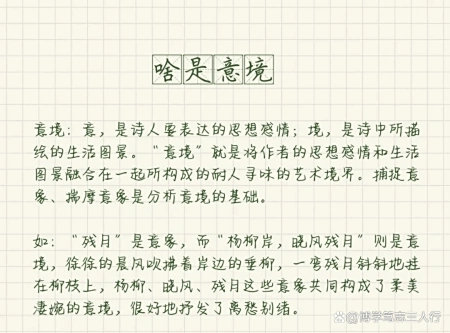 啥是意境
意境：意，是诗人要表达的思想感情；境，是诗中所描
绘的生活图景。“意境”就是将作者的思想感情和生活
图景融合在一起所构成的耐人寻味的艺术境界。捕捉意
象、揣摩意象是分析意境的基础。
如：“残月”是意象，而“杨柳岸，晓风残月”则是意
境，徐徐的晨风吹拂着岸边的垂柳，一弯残月斜斜地挂
在柳枝上，杨柳、晓风、残月这些意象共同构成了柔美
凄婉的意境，很好地抒发了离愁别绪。
博学笃志三人行